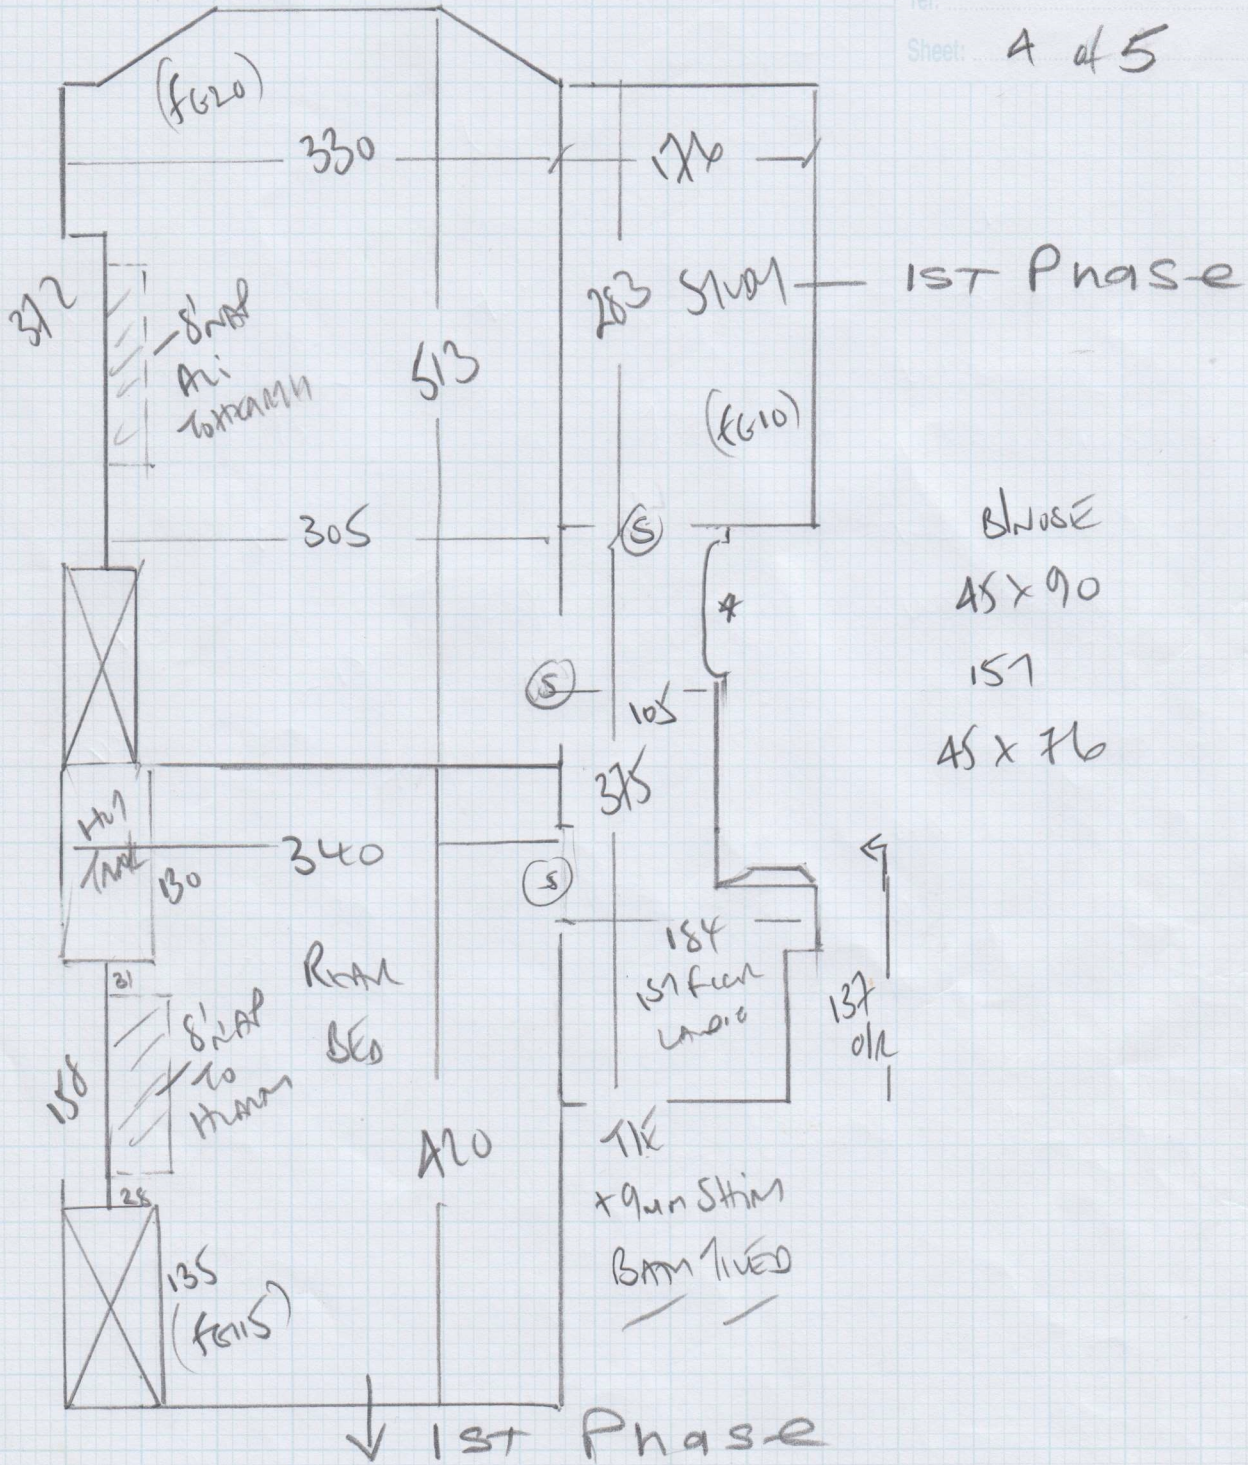 Tel:
Sheet: 4 of 5
(FG20)
330
176
372
S'NAP
Ali
To HEARTH
513
283
STUDY
1ST Phase
(FG10)
305
S
B/NOSE
45 x 90
151
45 x 76
*
S
105
375
HOT
TANK
130
340
S
184
1ST FLOOR
LANDING
137
O/R
31
REAR
BED
S'NAP
TO
HEARTH
158
420
28
T/E
+ 9mm SHIM
BATH TILED
135
(FG115)
1ST Phase